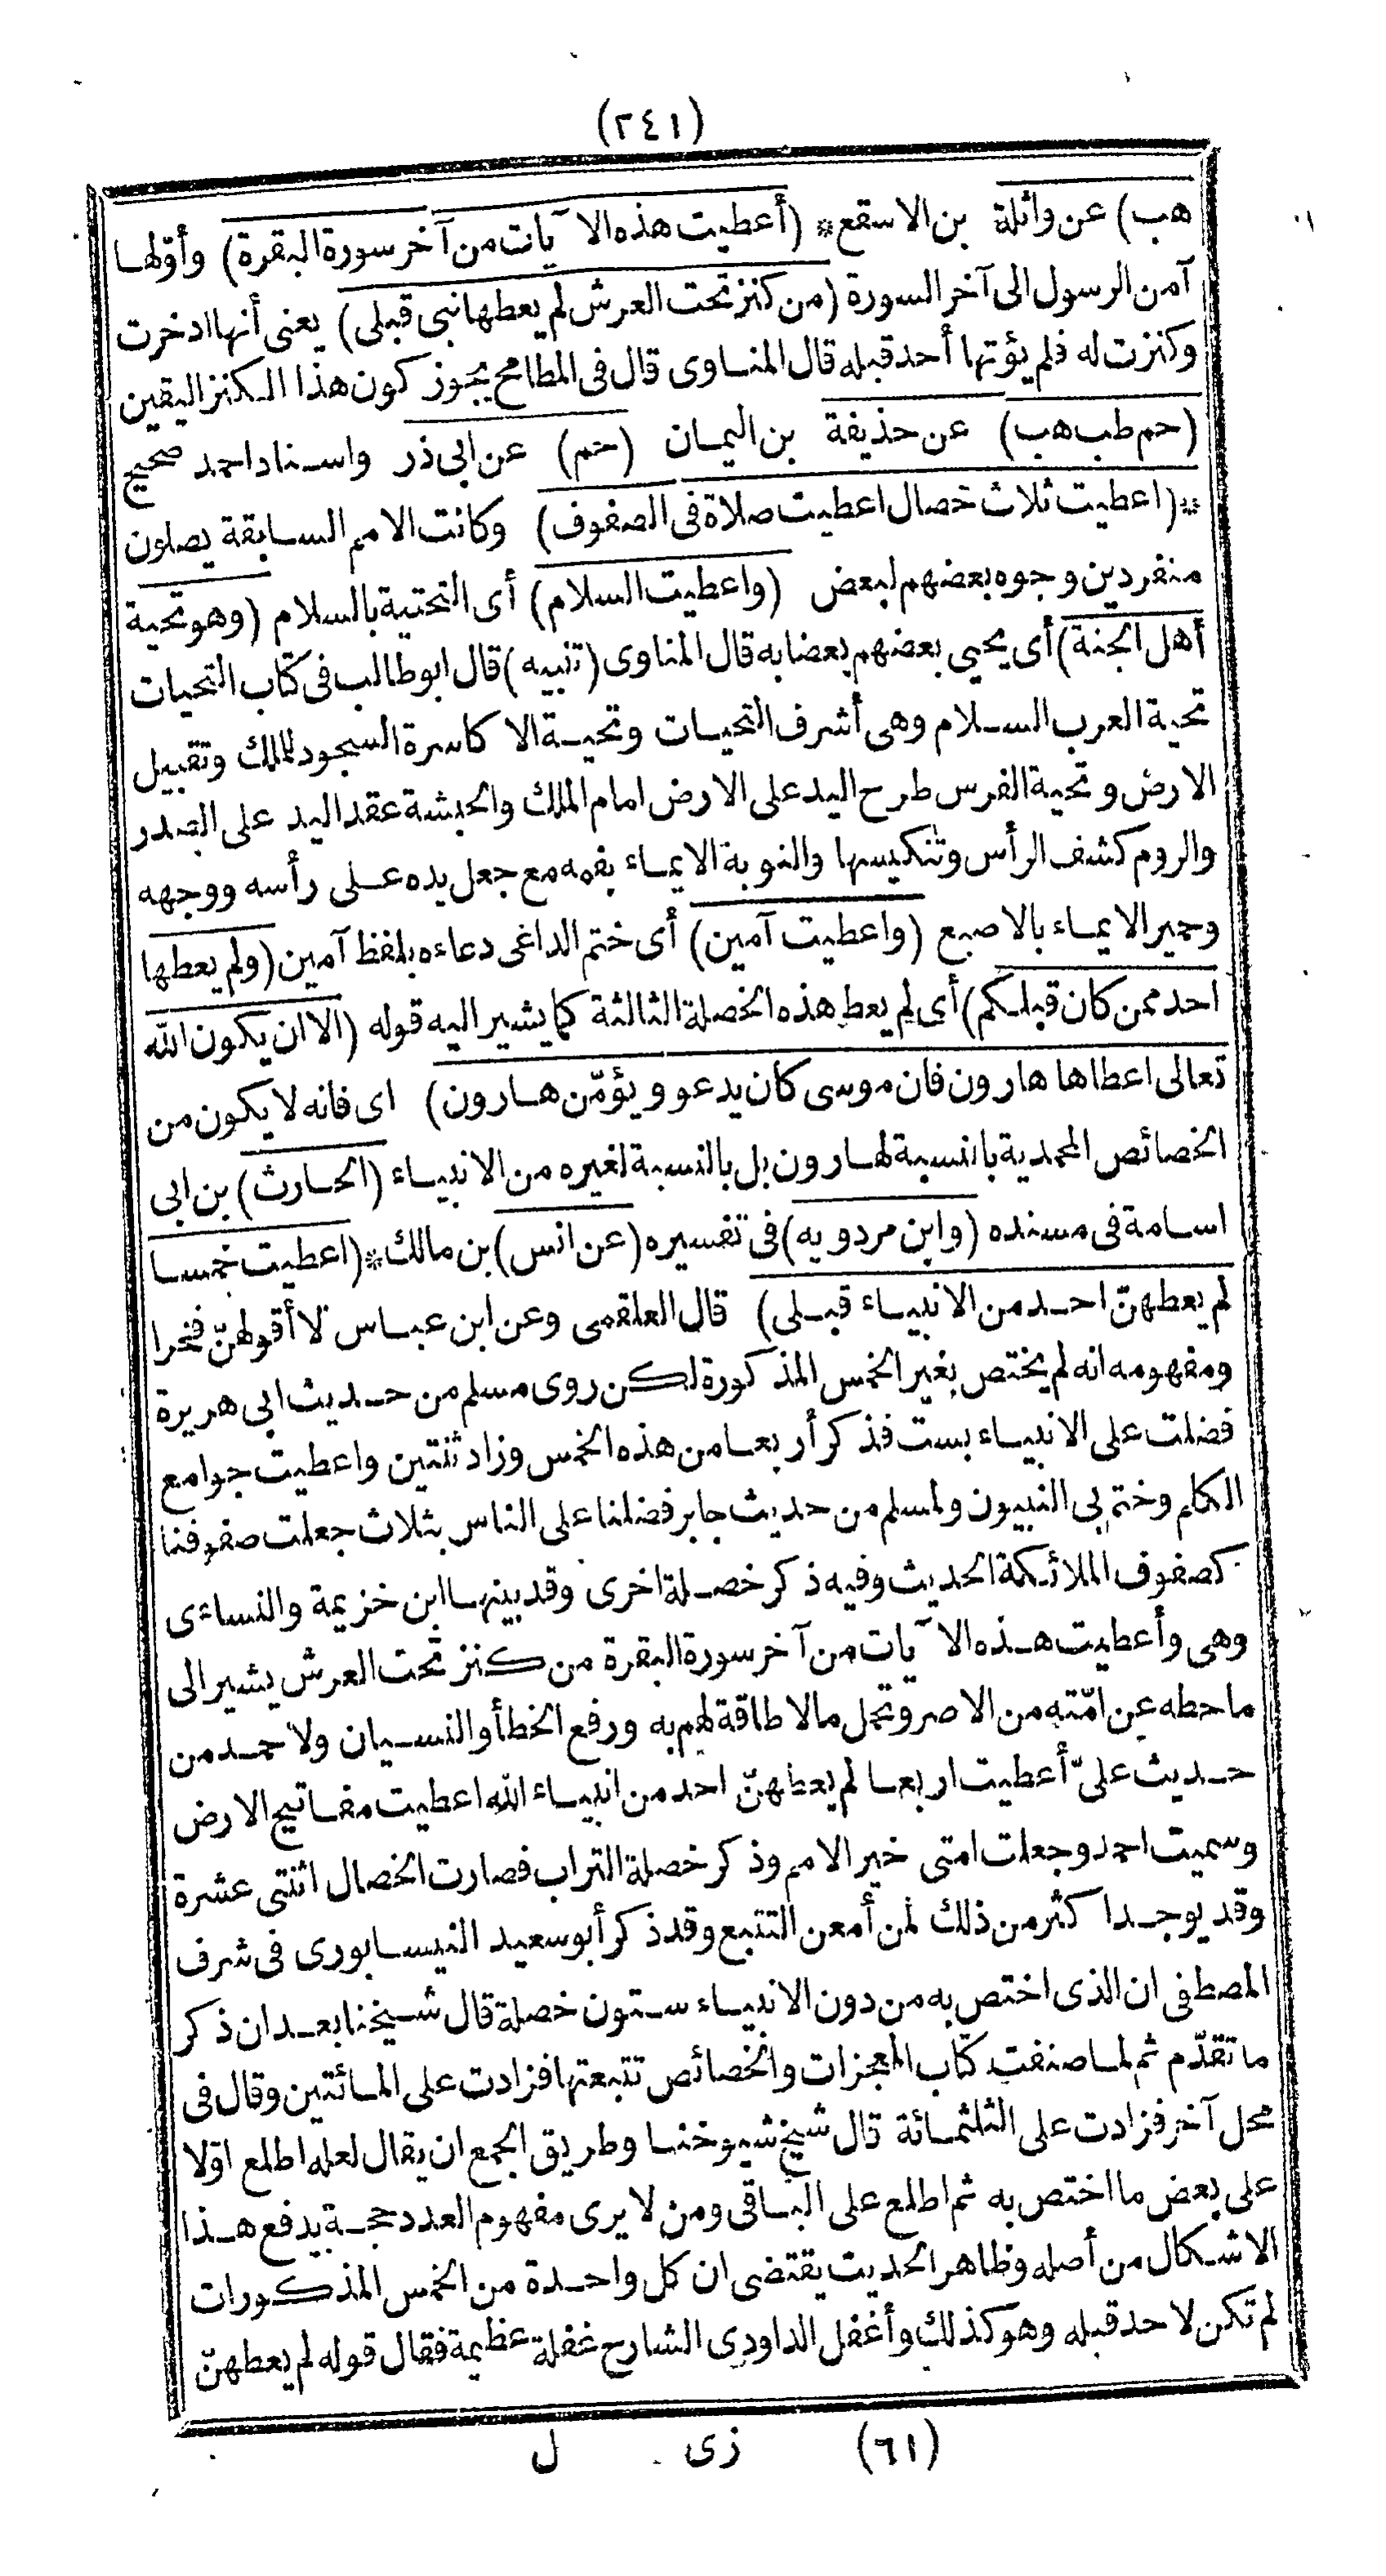 (٢٤١)
هب) عن واثلة بن الاسقع* (أعطيت هذه الآيات من آخر سورة البقرة) وأولها
آمن الرسول الى آخر السورة (من كنز تحت العرش لم يعطها نبى قبلى) يعنى أنها ادخرت
وكنزت له فلم يؤتها أحد قبله قال المناوى قال فى المطامح يجوز كون هذا الكنز اليقين
(حم طب هب) عن حذيفة بن اليمان (حم) عن ابى ذر واسناد احمد صحيح
*(اعطيت ثلاث خصال اعطيت صلاة فى الصفوف) وكانت الامم السابقة يصلون
منفردين وجوه بعضهم لبعض (واعطيت السلام) أى التحتية بالسلام (وهو تحية
أهل الجنة) أى يحيى بعضهم بعضا به قال المناوى (تنبيه) قال ابو طالب فى كتاب التحيات
تحية العرب السلام وهى أشرف التحيات وتحية الاكاسرة السجود للملك وتقبيل
الارض وتحية الفرس طرح اليد على الارض امام الملك والحبشة عقد اليد على الصدر
والروم كشف الرأس وتنكيسها والنوبة الايماء بفمه مع جعل يده على رأسه ووجهه
وحمير الايماء بالاصبع (واعطيت آمين) أى ختم الداعى دعاءه بلفظ آمين (ولم يعطها
احد ممن كان قبلكم) أى لم يعط هذه الخصلة الثالثة كما يشير اليه قوله (الا ان يكون الله
تعالى اعطاها هارون فان موسى كان يدعو ويؤمّن هارون) اى فانه لا يكون من
الخصائص المحمدية بالنسبة لهارون بل بالنسبة لغيره من الانبياء (الحارث) بن ابى
اسامة فى مسنده (وابن مردويه) فى تفسيره (عن انس) بن مالك* (اعطيت خمسا
لم يعطهنّ احد من الانبياء قبلى) قال العلقمى وعن ابن عباس لا أقولهنّ فخرا
ومفهومه انه لم يختص بغير الخمس المذكورة لكن روى مسلم من حديث ابى هريرة
فضلت على الانبياء بست فذكر أربعا من هذه الخمس وزاد ثنتين واعطيت جوامع
الكلم وختم بى النبيون ولمسلم من حديث جابر فضلنا على الناس بثلاث جعلت صفوفنا
كصفوف الملائكة الحديث وفيه ذكر خصلة اخرى وقد بينها ابن خزيمة والنساءى
وهى وأعطيت هذه الآيات من آخر سورة البقرة من كنز تحت العرش يشير الى
ما حطه عن امّته من الاصر وتحمل ما لا طاقة لهم به ورفع الخطأ والنسيان ولاحمد من
حديث علىّ أعطيت اربعا لم يعطهنّ احد من انبياء الله اعطيت مفاتيح الارض
وسميت احمد وجعلت امتى خير الامم وذكر خصلة التراب فصارت الخصال اثنتى عشرة
وقد يوجد اكثر من ذلك لمن أمعن التتبع وقد ذكر أبو سعيد النيسابورى فى شرف
المصطفى ان الذى اختص به من دون الانبياء ستون خصلة قال شيخنا بعد ان ذكر
ما تقدّم ثم لما صنفت كتاب المعجزات والخصائص تتبعتها فزادت على المائتين وقال فى
محل آخر فزادت على الثلثمائة قال شيخ شيوخنا وطريق الجمع ان يقال لعله اطلع اوّلا
على بعض ما اختص به ثم اطلع على الباقى ومن لا يرى مفهوم العدد حجة يدفع هذا
الاشكال من أصله وظاهر الحديث يقتضى ان كل واحدة من الخمس المذكورات
لم تكن لاحد قبله وهو كذلك وأغفل الداودى الشارح غفلة عظيمة فقال قوله لم يعطهنّ
(٦١) زى ل